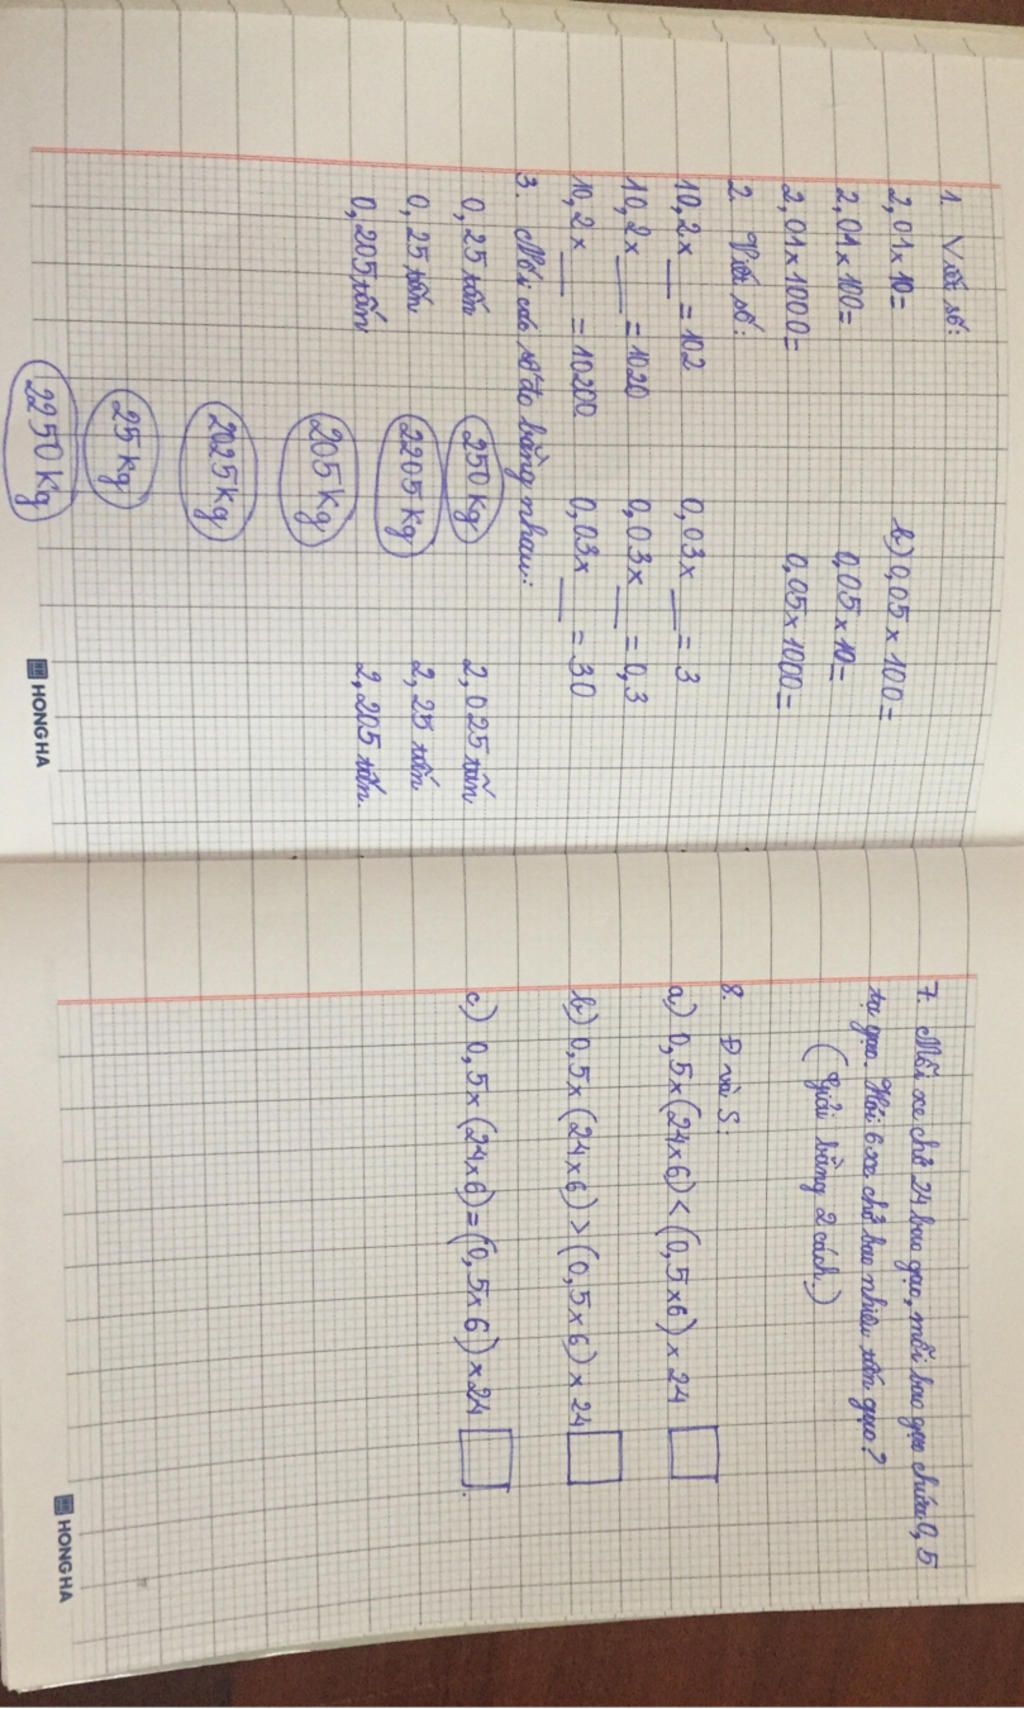 1. Viết số:
2,01 x 10 =
b) 0,05 x 100 =
2,01 x 100 =
0,05 x 10 =
2,01 x 1000 =
0,05 x 1000 =
2. Viết số:
10,2 x __ = 102
0,03 x __ = 3
10,2 x __ = 1020
0,03 x __ = 0,3
10,2 x __ = 10200
0,03 x __ = 30
3. Nối các số đo bằng nhau:
0,25 tấn
250 kg
2,025 tấn
0,25 tấn
2205 kg
2,25 tấn
0,205 tấn
205 kg
2,205 tấn.
2025 kg
25 kg
2250 kg
HONG HA
7. Mỗi xe chở 24 bao gạo, mỗi bao gạo chứa 0,5
tạ gạo. Hỏi 6 xe chở bao nhiêu tấn gạo?
(Giải bằng 2 cách.)
8. Đ và S:
a) 0,5 x (24 x 6) < (0,5 x 6) x 24
b) 0,5 x (24 x 6) > (0,5 x 6) x 24
c) 0,5 x (24 x 6) = (0,5 x 6) x 24
HONG HA